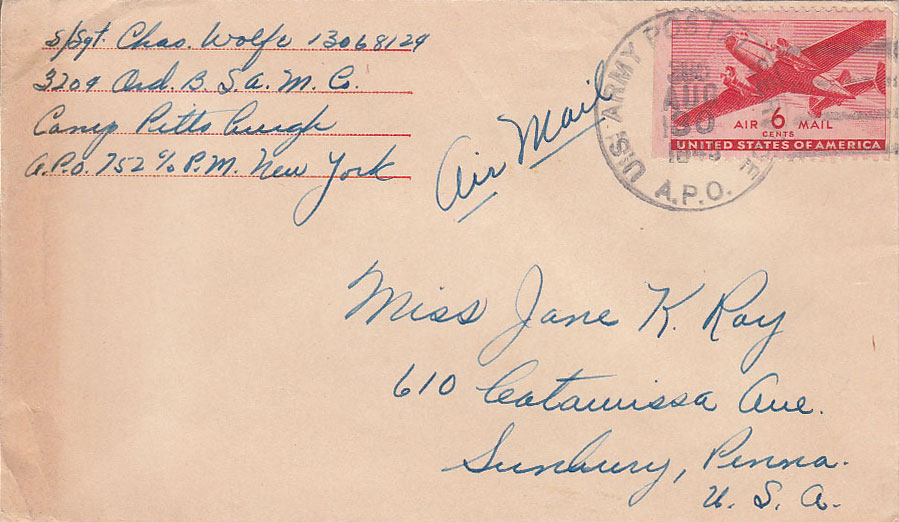 S/Sgt. Chas. Wolfe 13068129
3209 Ord. B. S. a. M. Co.
Camp Pittsburgh
A.P.O. 752 c/o P.M. New York
Air Mail
U.S. ARMY POST
AUG
30
A.P.O.
AIR 6 MAIL
CENTS
UNITED STATES OF AMERICA
Miss Jane K. Ray
610 Catawissa Ave.
Sunbury, Penna.
U. S. A.